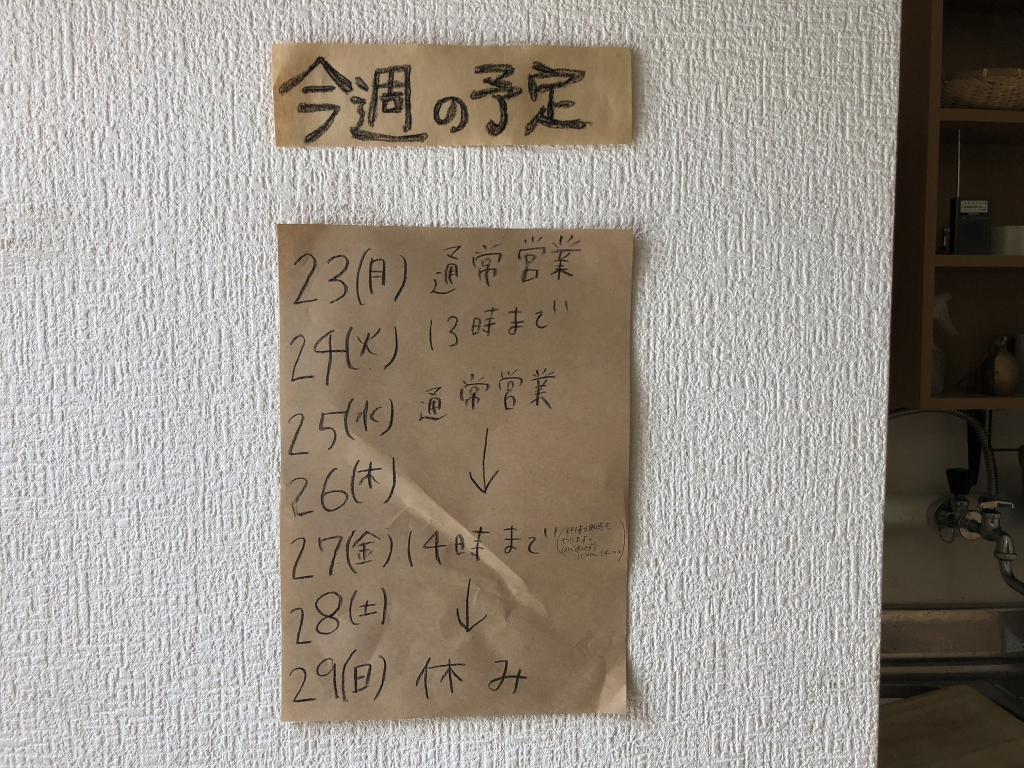 今週の予定
23(月) 通常営業
24(火) 13時まで
25(水) 通常営業
26(木) ↓
27(金) 14時まで
28(土) ↓
29(日) 休み